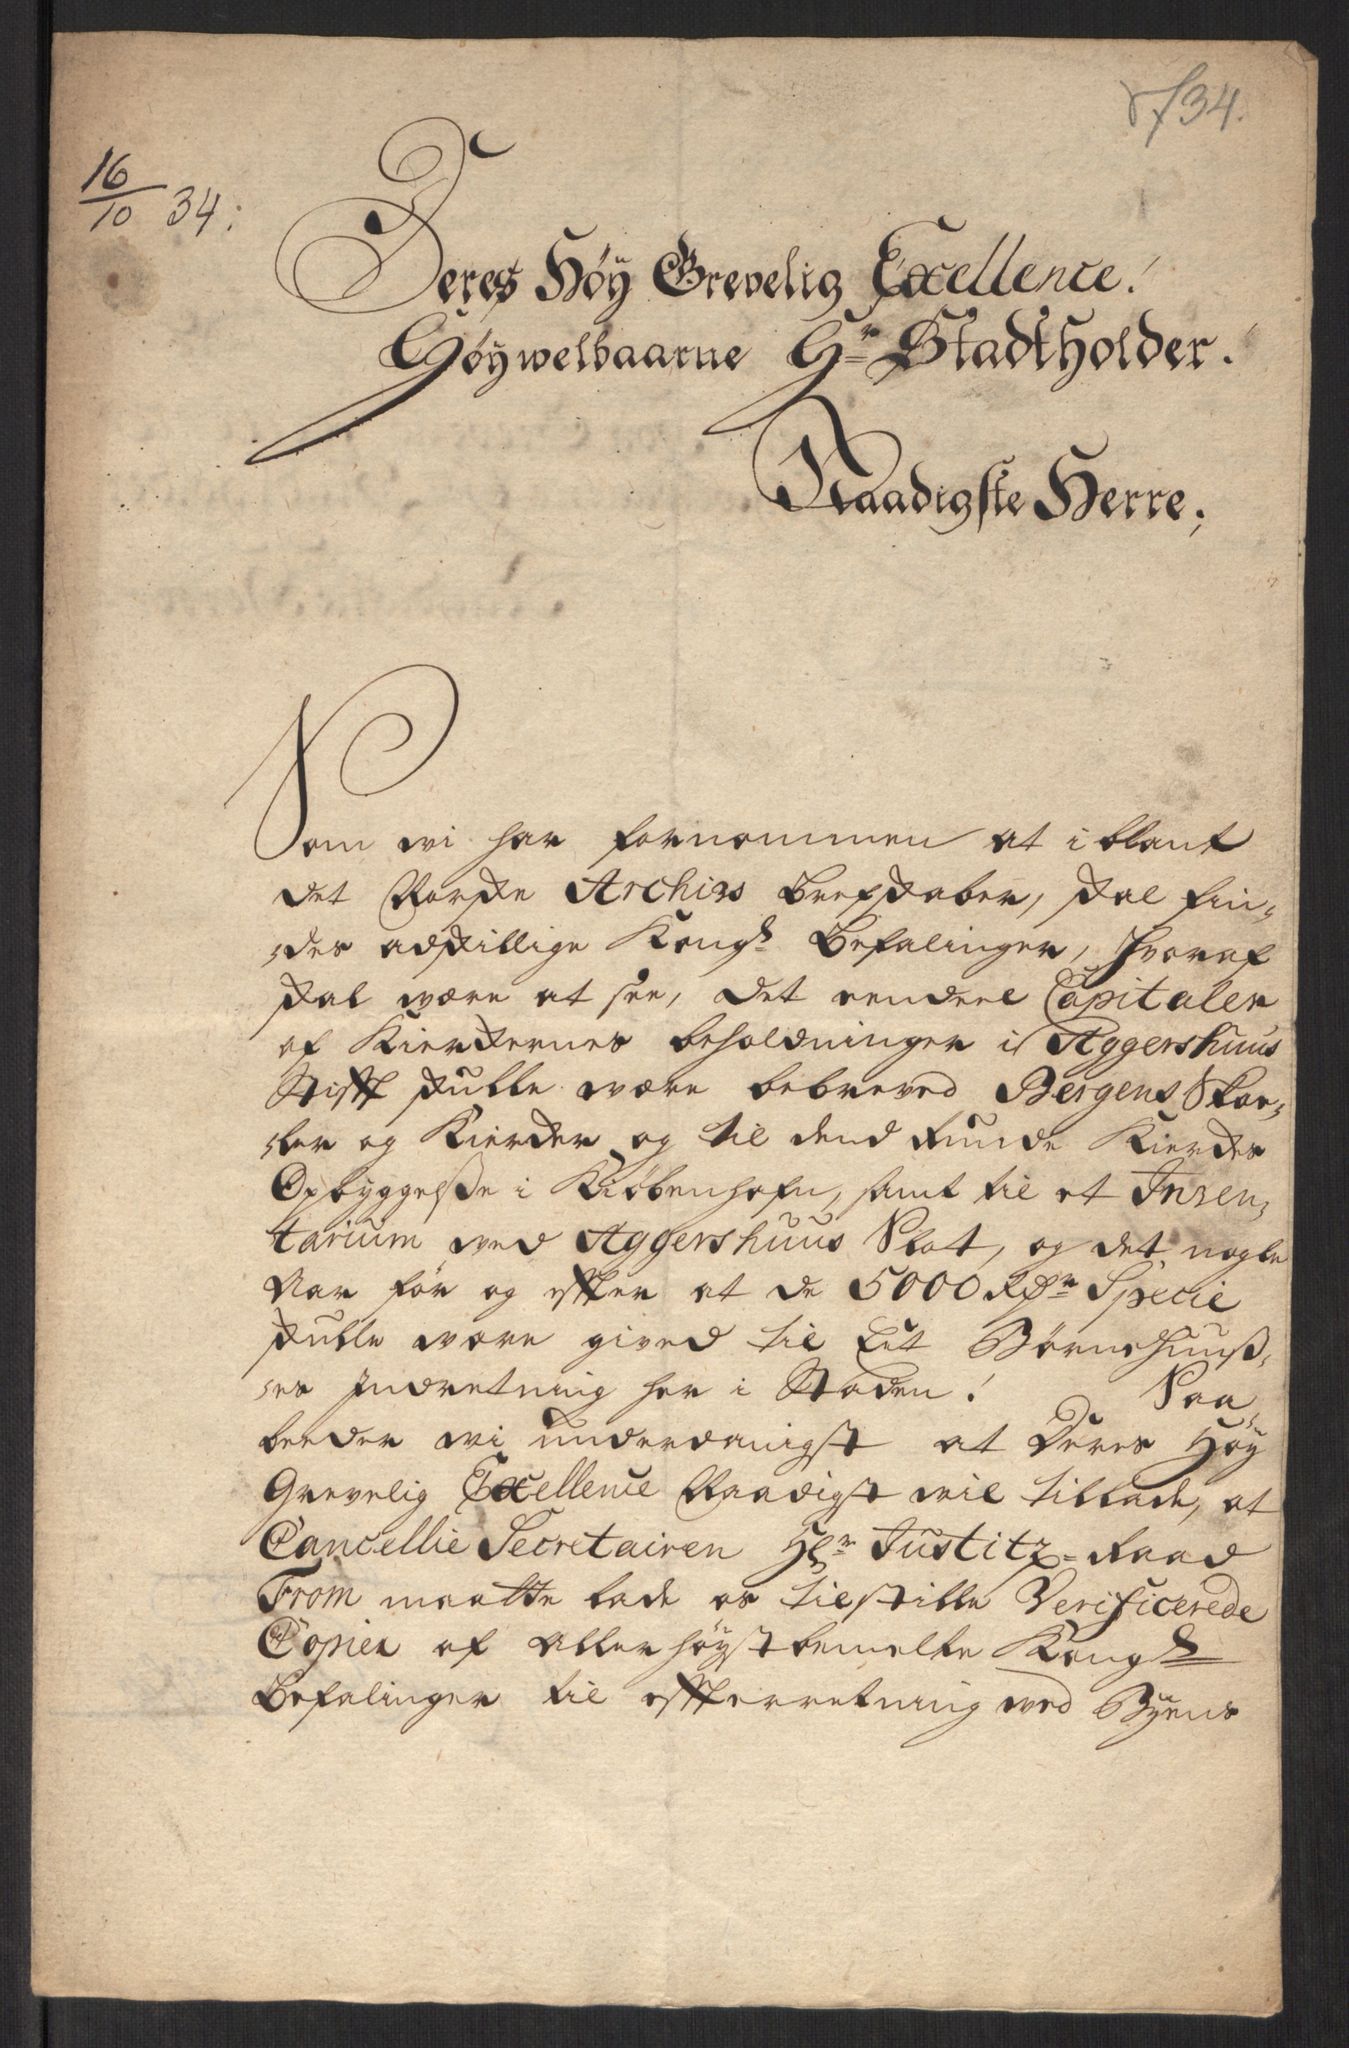 1734.
16/10 34:
Deres Høy Grevelig Excellence!
Høywelbaarne Hr Stadtholder.
Naadigste Herre;
Som wi har fornommen at iblant
det Norske Archivs brefskaber, skal fin¬
des adskillige Kongl Befalinger, hvoraf
skal være at see, det eendeel Capitaler
af Kierkernes beholdninger i Aggershuus
Stift skulle være bebreved Bergens Skoe¬
ler og Kierker og til dend Runde Kierkes
Opbyggelse i Kiöbenhafn, samt til et Inven¬
tarium ved Aggershuus Slot, og det nogle
Aar før og efter at de 5000 Rdr Specie
skulle være gived til Eet Børnehuus¬
es Indretning her i Staden! Saa
beeder wi underdanigst at Deres Høy
Grevelig Excellence Naadigst wil tillade, at
Cancellie Secretairen Hr Justitz=Raad
From maatte lade os tilstille Verificerede
Copier af Allerhøystbemelte Kongl
Befalinger til efterretning ved Byens